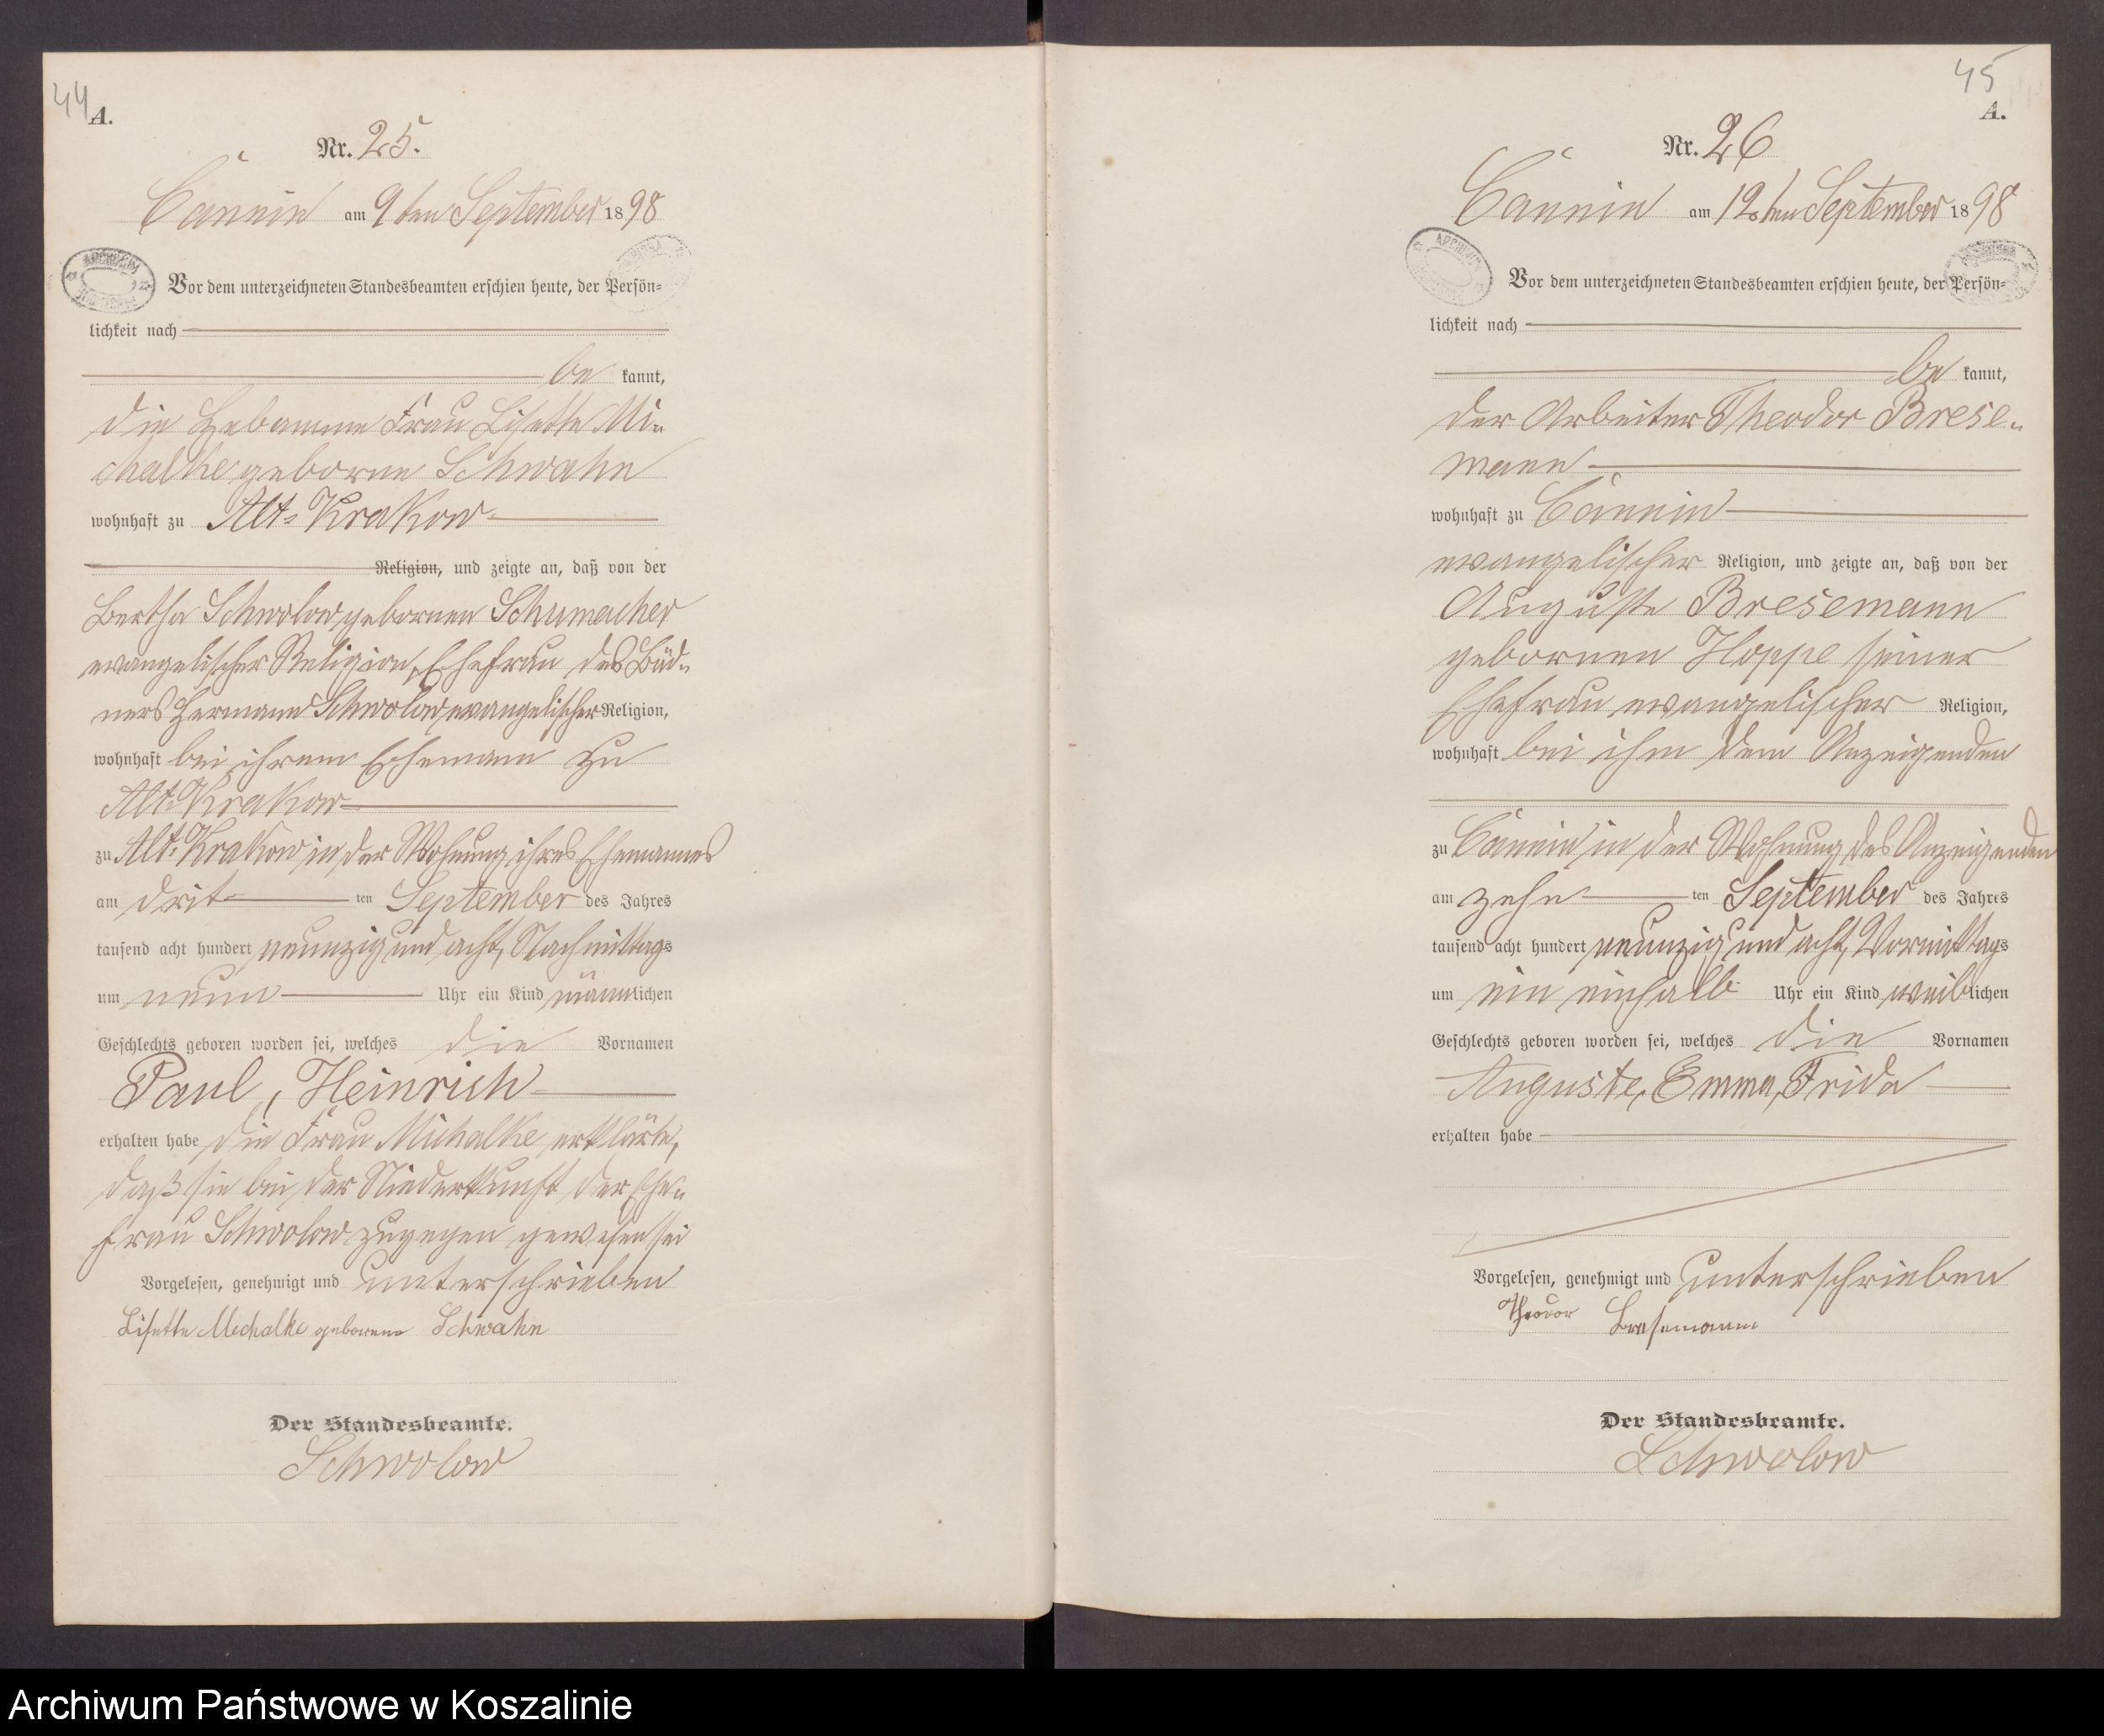 44
A.
Nr. 25.
Cännin am 9ten September 1898
Vor dem unterzeichneten Standesbeamten erschien heute, der Persön-
lichkeit nach
be kannt,
die Hebamme Frau Lisette Mi-
chalke geborne Schwahn
wohnhaft zu Alt-Krakow
Religion, und zeigte an, daß von der
Bertha Schwolow gebornen Schumacher
evangelischer Religion, Ehefrau des Büd-
ners Hermann Schwolow, evangelischer Religion,
wohnhaft bei ihrem Ehemann zu
Alt-Krakow
zu Alt-Krakow in der Wohnung ihres Ehemannes
am drit ten September des Jahres
tausend acht hundert neunzig und acht, Nachmittags
um neun Uhr ein Kind männlichen
Geschlechts geboren worden sei, welches die Vornamen
Paul, Heinrich
erhalten habe die Frau Michalke erklärte,
daß sie bei der Niederkunft der Ehe-
frau Schwolow zugegen gewesen sei
Vorgelesen, genehmigt und unterschrieben
Lisette Michalke geborene Schwahn
Der Standesbeamte.
Schwolow
45
A.
Nr. 26
Cännin am 12ten September 1898
Vor dem unterzeichneten Standesbeamten erschien heute, der Persön-
lichkeit nach
be kannt,
der Arbeiter Theodor Brese-
mann
wohnhaft zu Cännin
evangelischer Religion, und zeigte an, daß von der
Auguste Bresemann
gebornen Hoppe seiner
Ehefrau, evangelischer Religion,
wohnhaft bei ihm dem Anzeigenden
zu Cännin in der Wohnung des Anzeigenden
am zehn ten September des Jahres
tausend acht hundert neunzig und acht, Vormittags
um ein einhalb Uhr ein Kind weiblichen
Geschlechts geboren worden sei, welches die Vornamen
Auguste, Emma, Frida
erhalten habe
Vorgelesen, genehmigt und unterschrieben
Theodor Bresemann
Der Standesbeamte.
Schwolow
Archiwum Państwowe w Koszalinie